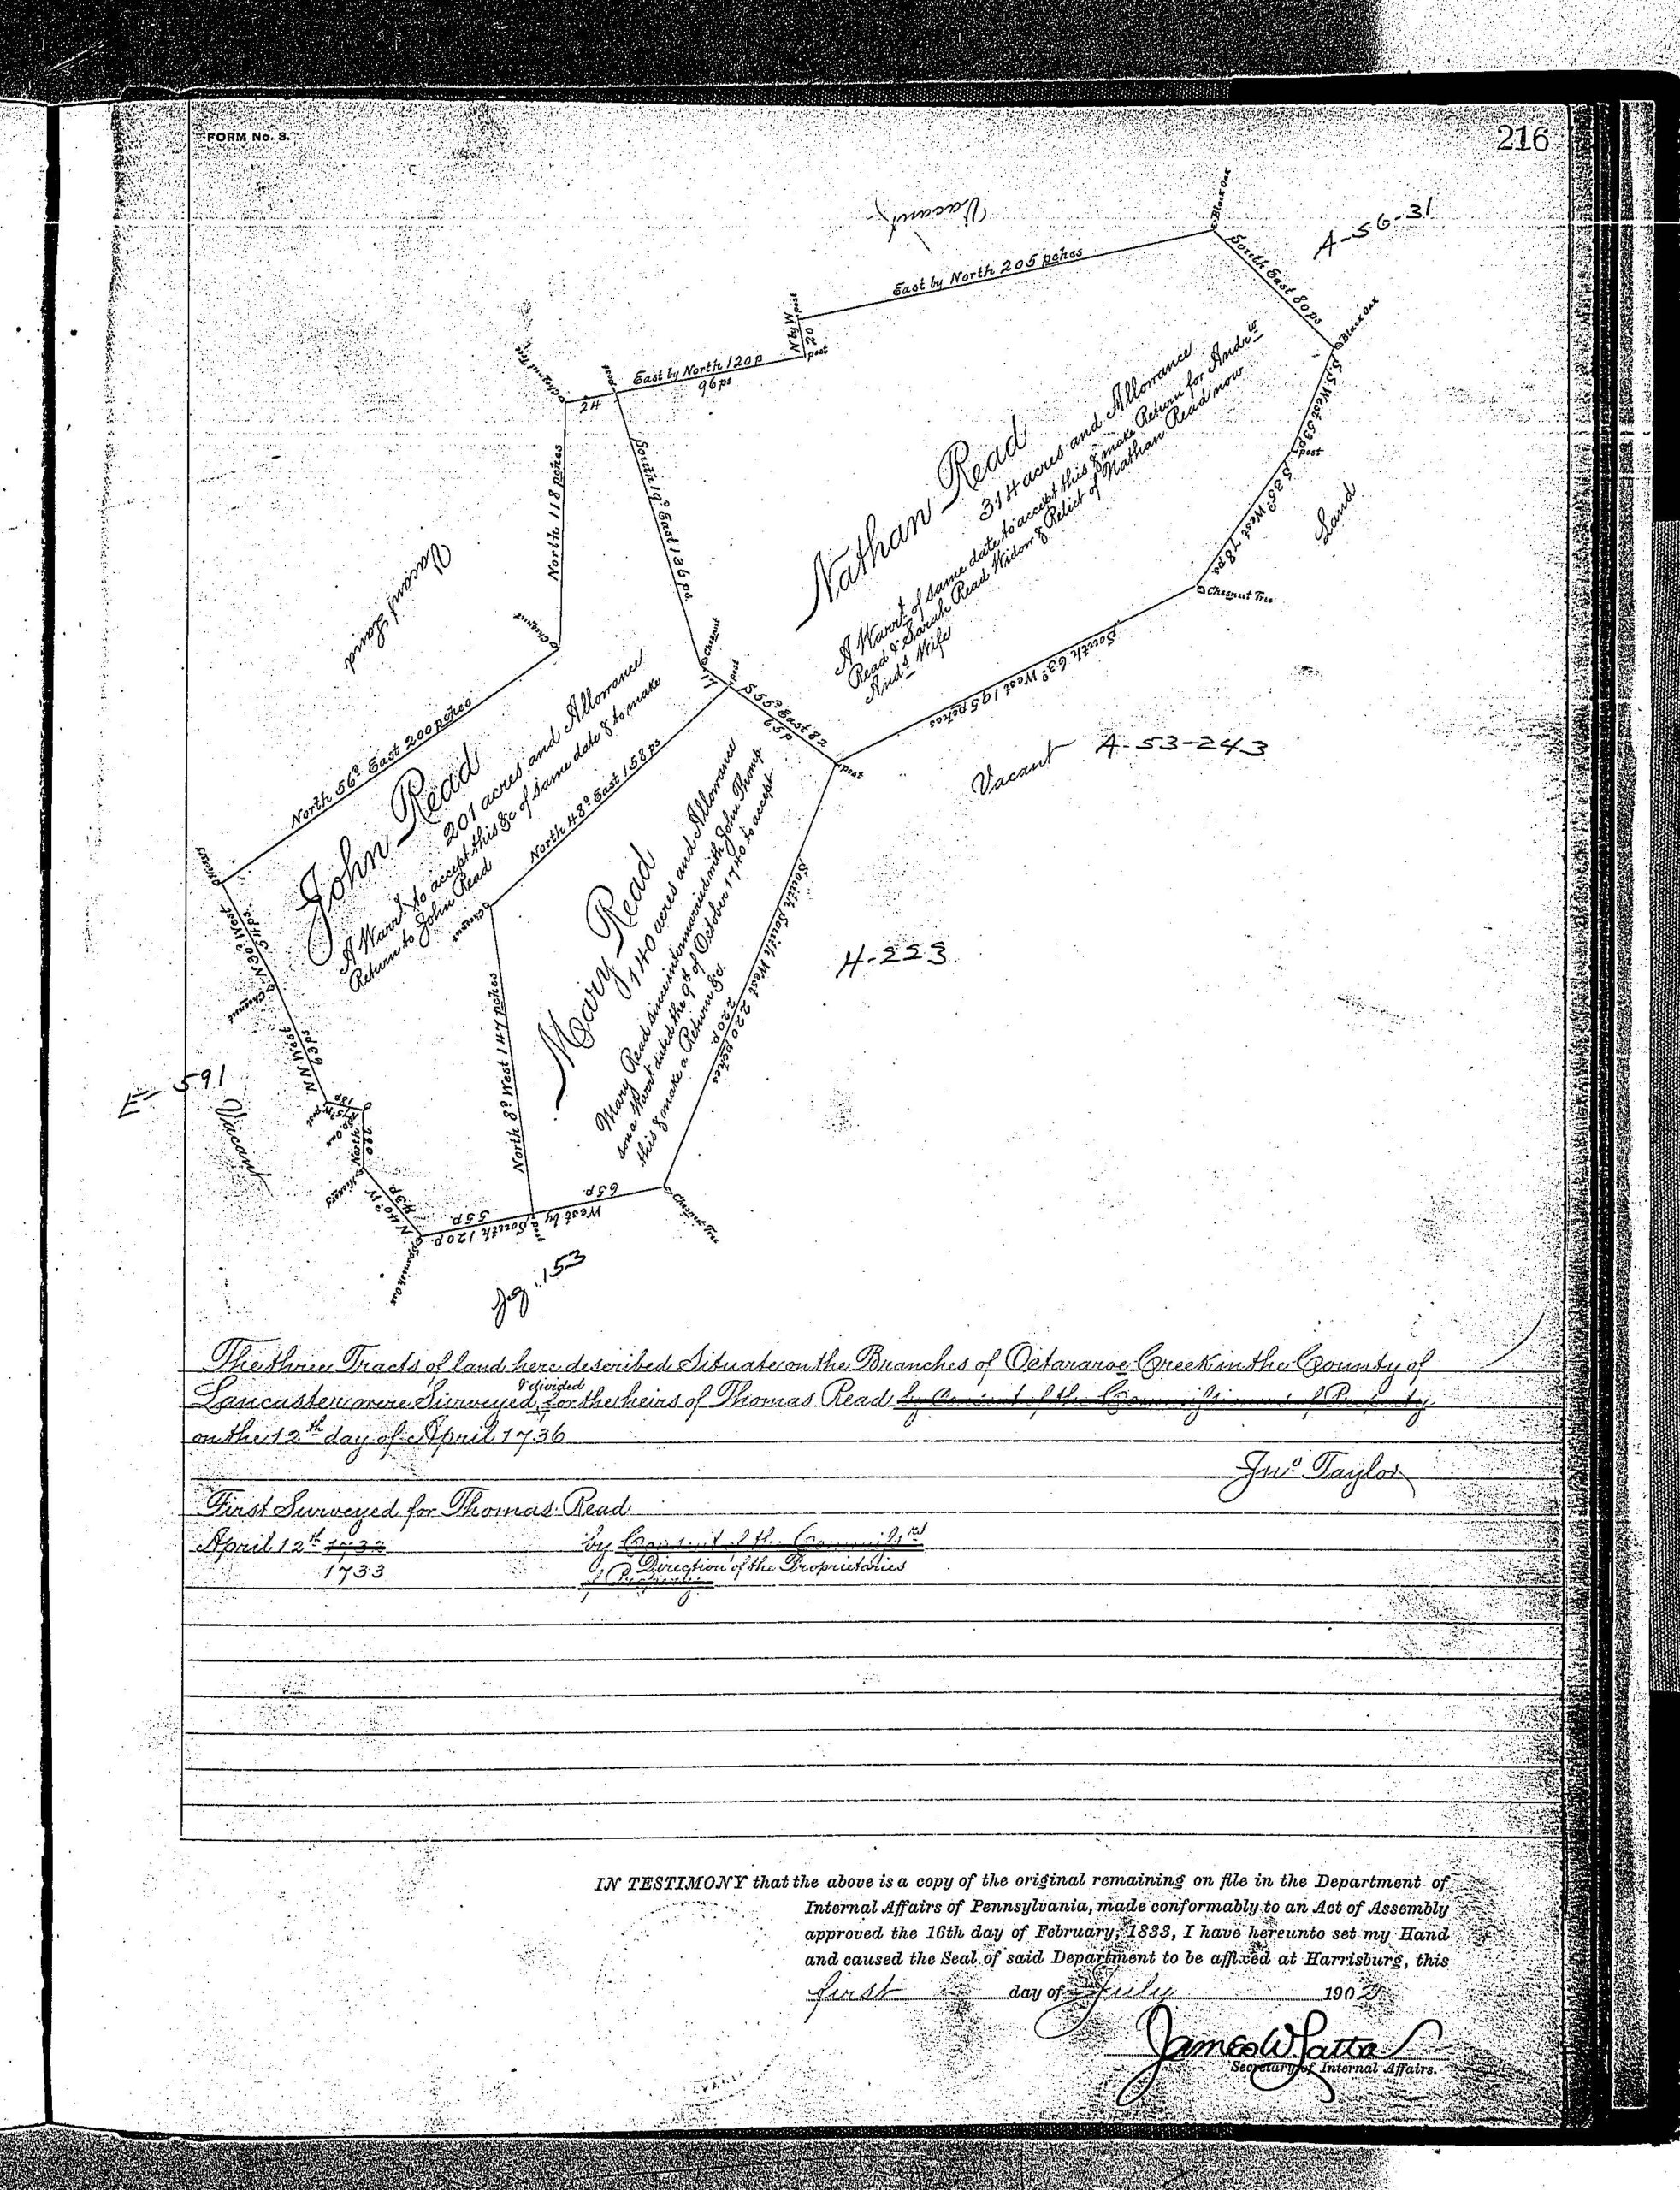 FORM No. 3.
216
Vacant
Black Oak
A-56-31
East by North 205 pches
South East 80 ps
N by W
20
post
post
Black Oak
Chesnut Tree
post
East by North 120 p
96 ps
24
S.S. West 53 p
post
North 118 pches
South 19° East 136 ps
Nathan Read
314 acres and Allowance
A Warrt of same date to accept this & make Return for Andrw
Read & Sarah Read Widow & Relict of Nathan Read now
Andw Wife
S 35° West 78 ps
Land
Chesnut Tree
Vacant Land
Chesnut
Chesnut
17
post
S 55° East 82
65 p
South 63° West 195 pches
post
Vacant A-53-243
North 56° East 200 pches
John Read
201 acres and Allowance
A Warrt to accept this &c of same date & to make
Return to John Read
North 48° East 158 ps
Hickory
N 30° West
54 ps.
Chesnut
Chesnut
Mary Read
140 acres and Allowance
Mary Read since intermarried with John Thomp
son a Warrt dated the 9th of October 1740 to accept
this & make a Return &c.
South South West 220 pches
220 p.
H-223
NN West
63 ps
North 8° West 147 pches
E-591
Vacant
18 p
post
North
Hickory
N 40° W
43 p.
Spanish Oak
55 p
65 p.
West by South 120 p.
post
Chesnut Tree
153
The three Tracts of land here described Situate on the Branches of Octararoe Creek in the County of
Lancaster were Surveyed & divided for the heirs of Thomas Read by Consent of the Commissioners of Property
on the 12th day of April 1736
Jno Taylor
First Surveyed for Thomas Read
April 12th 1732 by Consent of the Commissrs
1733 Direction of the Proprietaries
of Property
IN TESTIMONY that the above is a copy of the original remaining on file in the Department of
Internal Affairs of Pennsylvania, made conformably to an Act of Assembly
approved the 16th day of February, 1833, I have hereunto set my Hand
and caused the Seal of said Department to be affixed at Harrisburg, this
first day of July 190
James W Latta
Secretary of Internal Affairs.